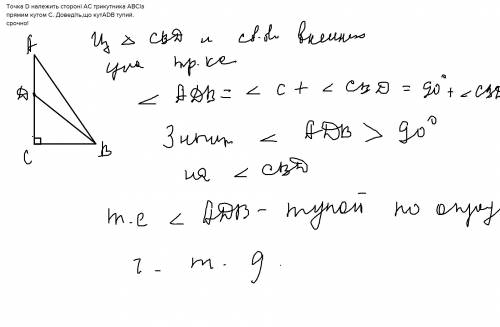 Точка D належить стороні AC трикутника ABCіз
прямим кутом C. Доведіть,що кутADB тупий.
срочно!
A
D
C
B
Из △ CBD и св.ва внешнего
угла тр. ка
∠ ADB = ∠ C + ∠ CBD = 90° + ∠ CBD
Значит ∠ ADB > 90°
на ∠ CBD
т.е ∠ ADB - тупой по опред
ч. т. д.